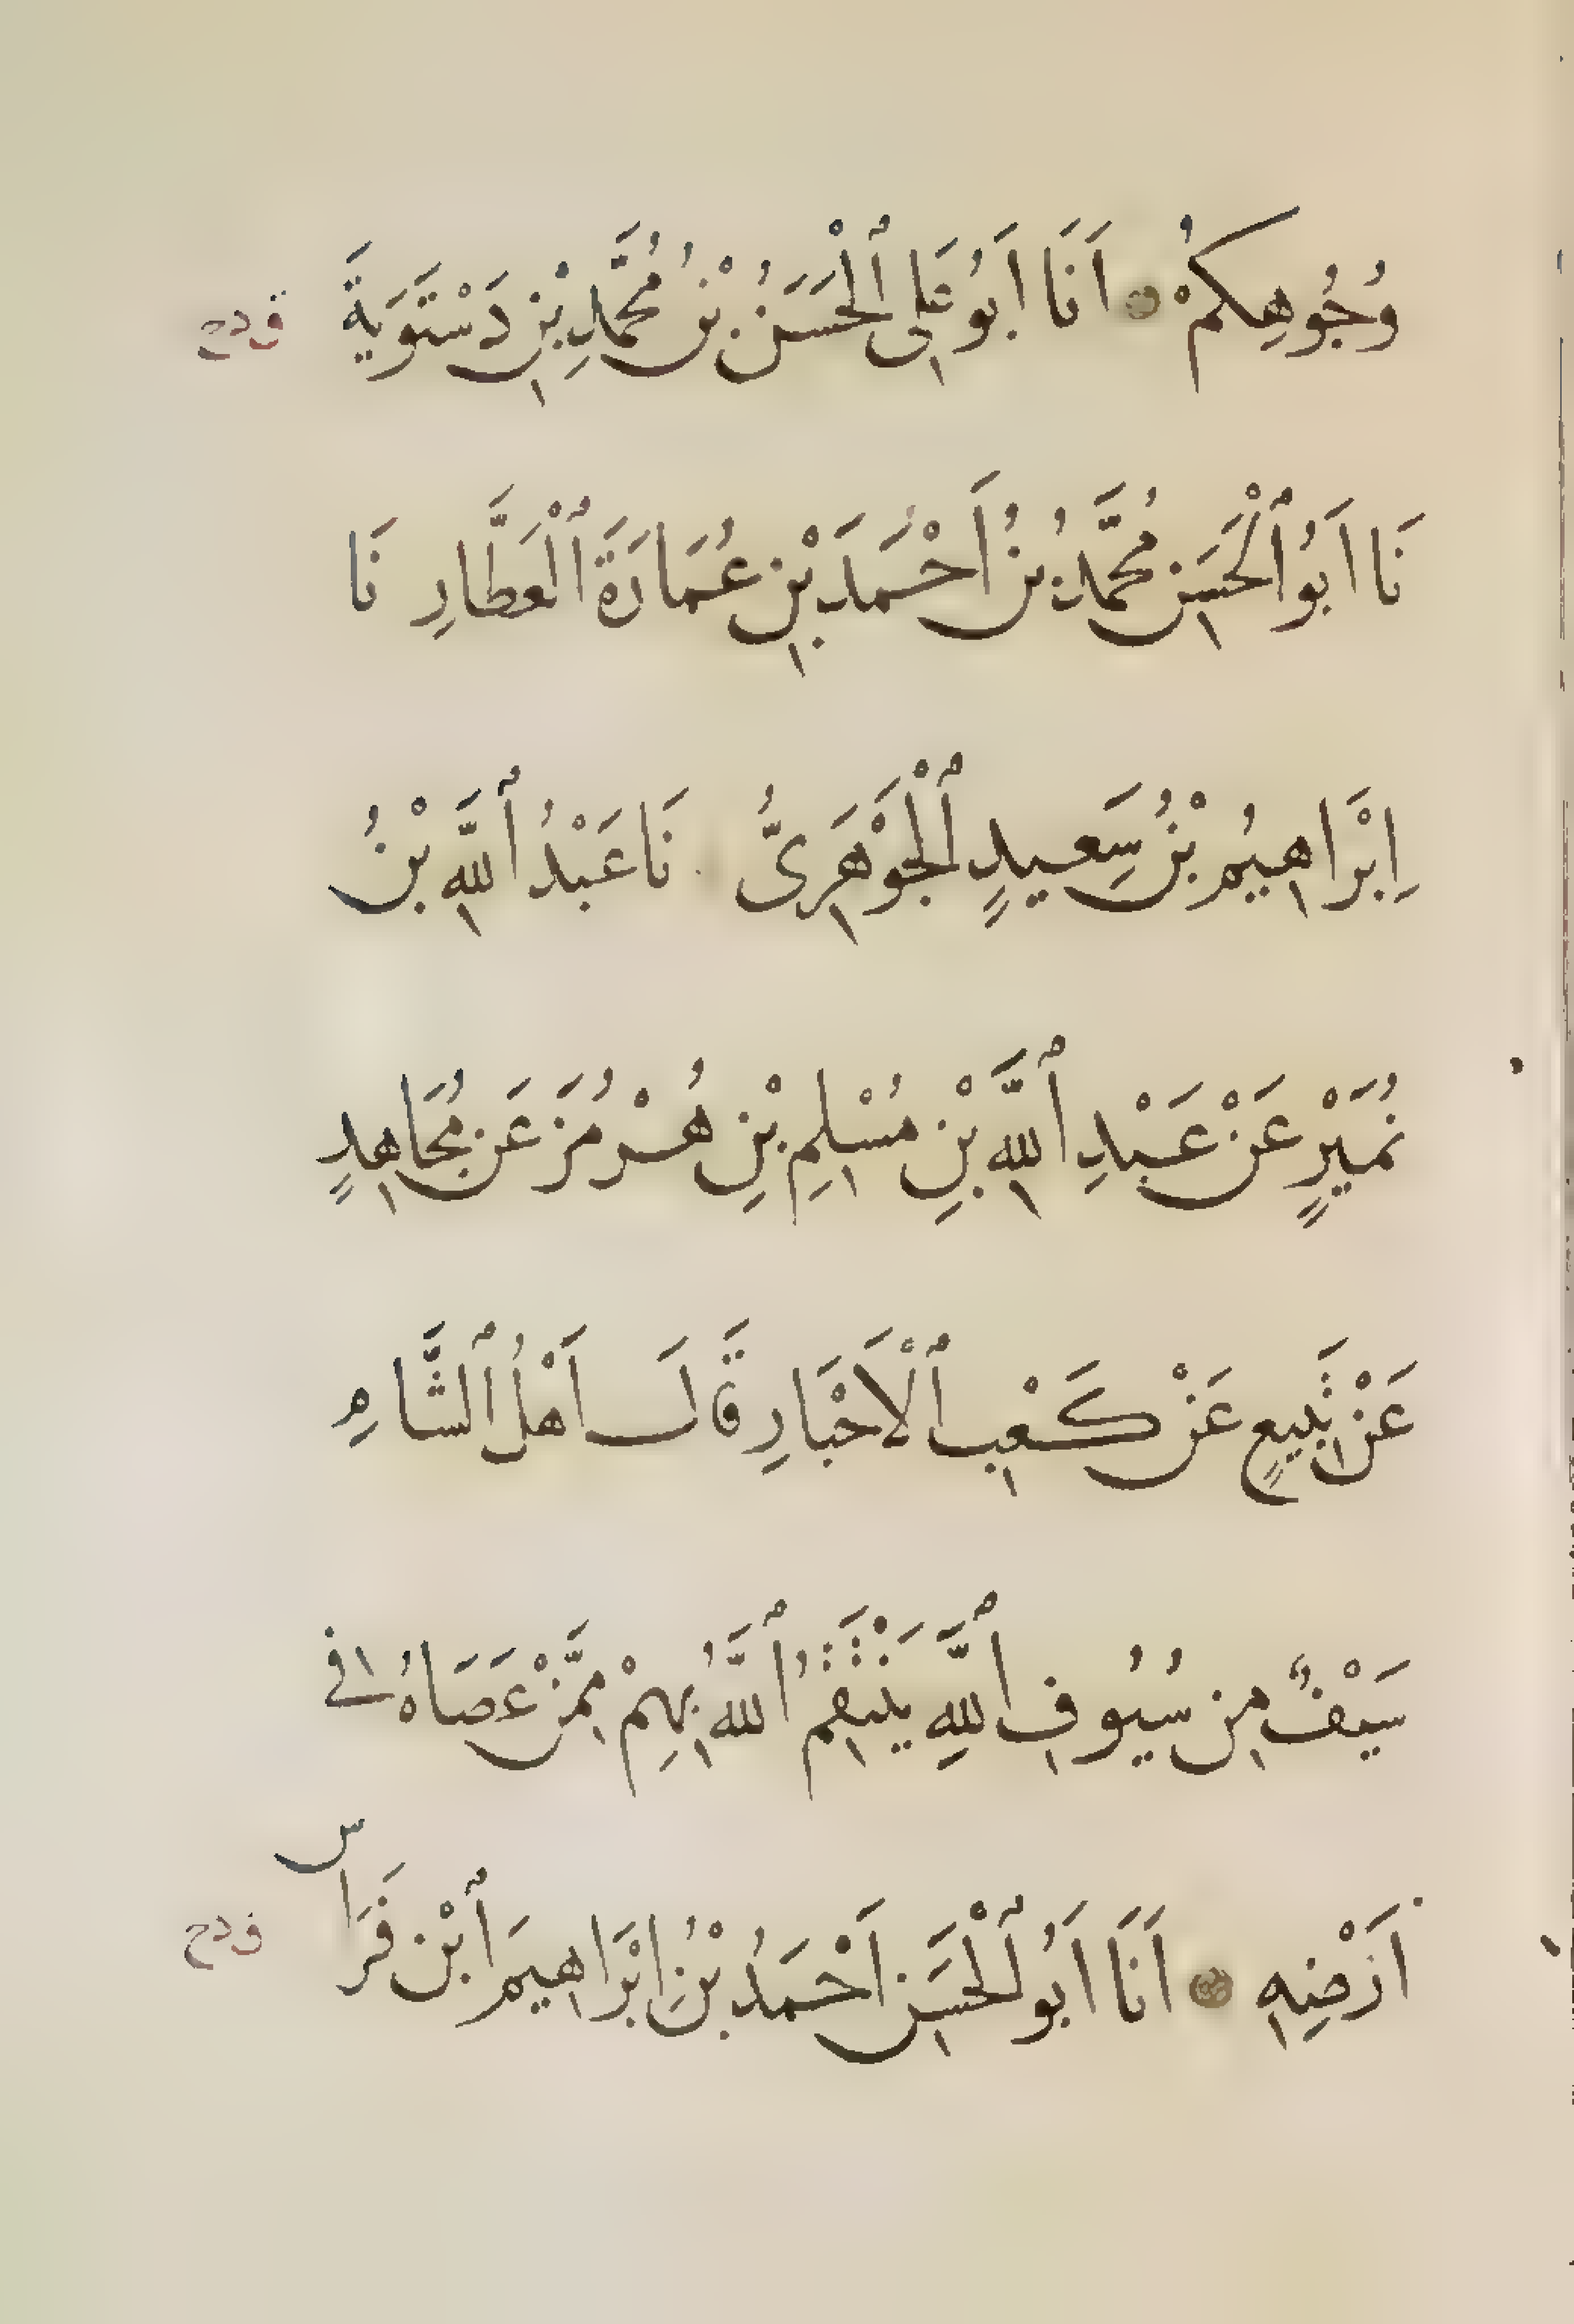 وُجُوهِكُمْ اَنَا اَبُو عَلِى ٱلْحَسَنُ بْنُ مُحَمَّدِ بْنِ دَسْتَوَيَةَ
نَا اَبُو ٱلْحَسَنِ مُحَمَّدُ بْنُ اَحْمَدَ بْنِ عُمَارَةَ ٱلْعَطَّارِ نَا
اِبْرَاهِيمُ بْنُ سَعِيدٍ ٱلْجَوْهَرِىُّ نَا عَبْدُ ٱللَّهِ بْنُ
نُمَيْرٍ عَنْ عَبْدِ ٱللَّهِ بْنِ مُسْلِمِ بْنِ هُرْمُزَ عَن مُجَاهِدٍ
عَنْ تُبَيِعٍ عَنْ كَعْبِ ٱلْاَحْبَارِ قَالَ اَهْلُ ٱلشَّامِ
سَيْفٌ مِن سُيُوفِ ٱللَّهِ يَنْتَقِمُ ٱللَّهُ بِهِمْ مِمَّنْ عَصَاهُ فِى
اَرْضِهِ اَنَا اَبُو لْحَسَنِ اَحْمَدُ بْنُ اِبْرَاهِيمَ ٱبْنِ فَرَاس